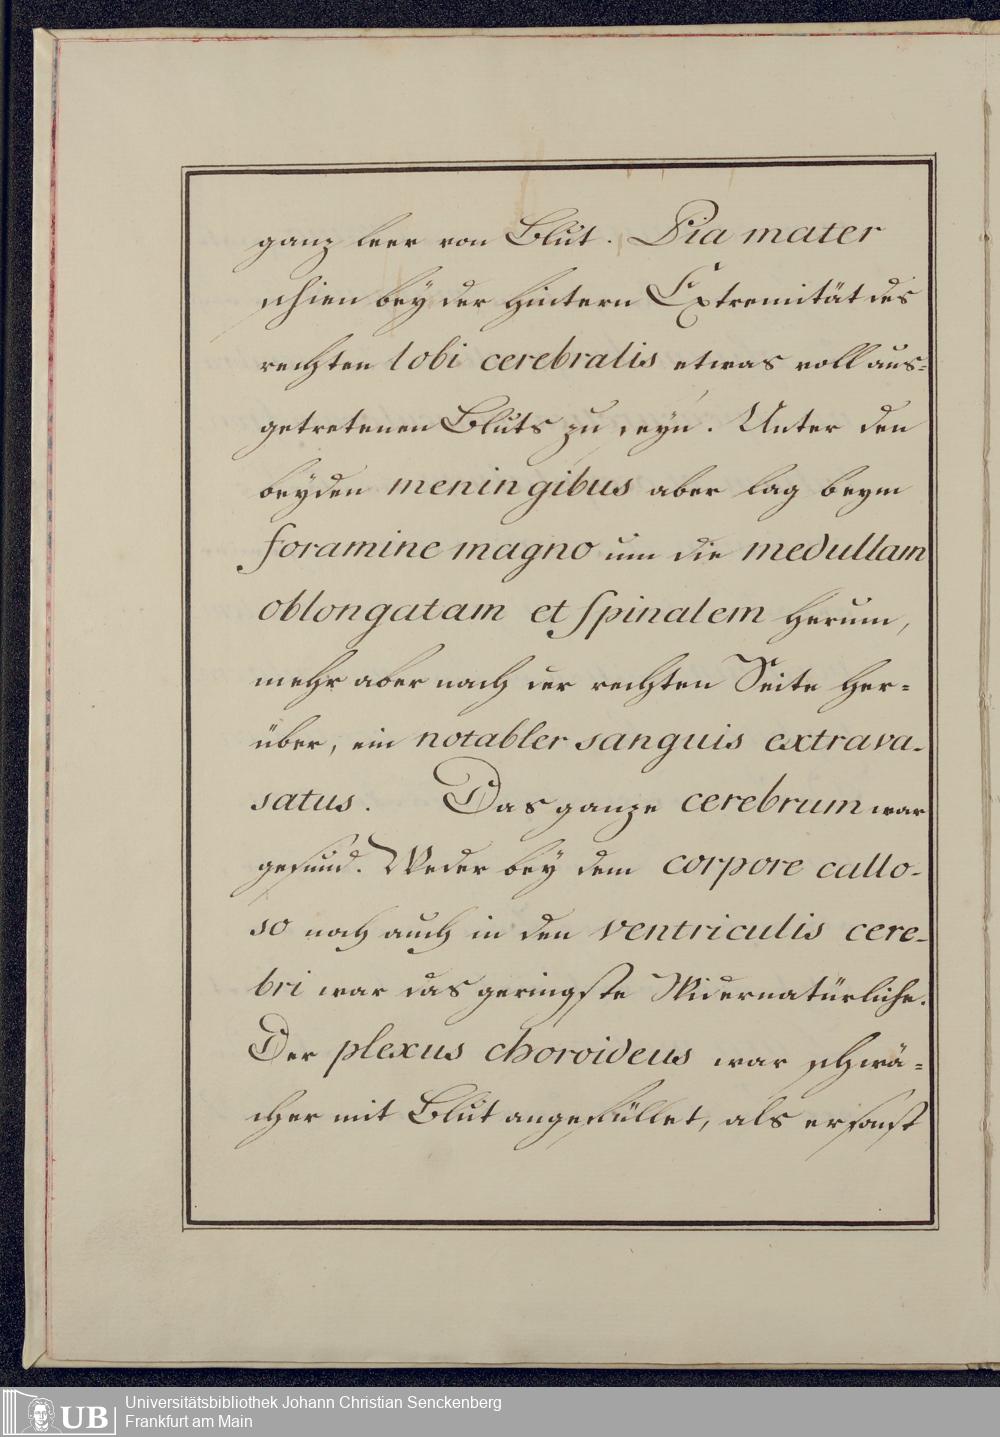 ganz leer von Blut. Pia mater
schien bey der hintern Extremität des
rechten lobi cerebralis etwas voll aus-
getretenen Bluts zu seyn. Unter den
beyden meningibus aber lag beym
foramine magno um die medullam
oblongatam et spinalem herum,
mehr aber nach der rechten Seite her-
über, ein notabler sanguis extrava-
satus. Das ganze cerebrum war
gesund. Weder bey dem corpore callo-
so noch auch in den ventriculis cere-
bri war das geringste Widernatürliche.
Der plexus choroideus war schwä-
cher mit Blut angefüllet, als er sonst
UB
Universitätsbibliothek Johann Christian Senckenberg
Frankfurt am Main